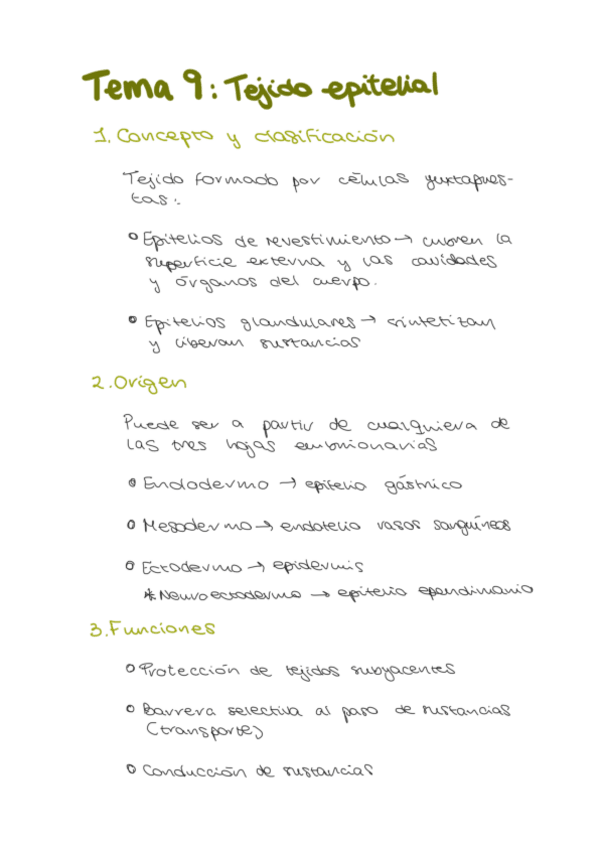 Tema 9: Tejido epitelial
1. Concepto y clasificación
Tejido formado por células yuxtapues-
tas:
Epitelios de revestimiento → cubren la
superficie externa y las cavidades
y órganos del cuerpo.
Epitelios glandulares → sintetizan
y liberan sustancias
2. Origen
Puede ser a partir de cualquiera de
las tres hojas embrionarias
Endodermo → epitelio gástrico
Mesodermo → endotelio vasos sanguíneos
Ectodermo → epidermis
* Neuroectodermo → epitelio ependimario
3. Funciones
Protección de tejidos subyacentes
Barrera selectiva al paso de sustancias
(transporte)
Conducción de sustancias